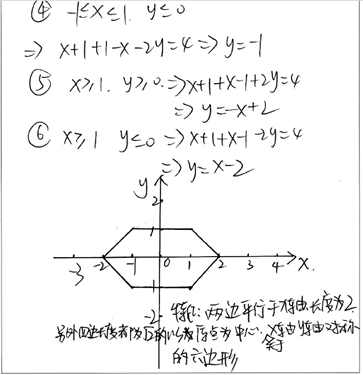 ④ -1≤x≤1. y≤0
=> x+1+1-x-2y=4 => y=-1
⑤ x≥1. y≥0. => x+1+x-1+2y=4
=> y=-x+2
⑥ x≥1 y≤0 => x+1+x-1-2y=4
=> y=x-2
y
2
1
-3 -2 -1 0 1 2 3 4 x.
-1
-2 特征: 两边平行于x轴且长度为2.
另外四边长度都为√2的以原点为中心. x轴y轴对称
的六边形 等